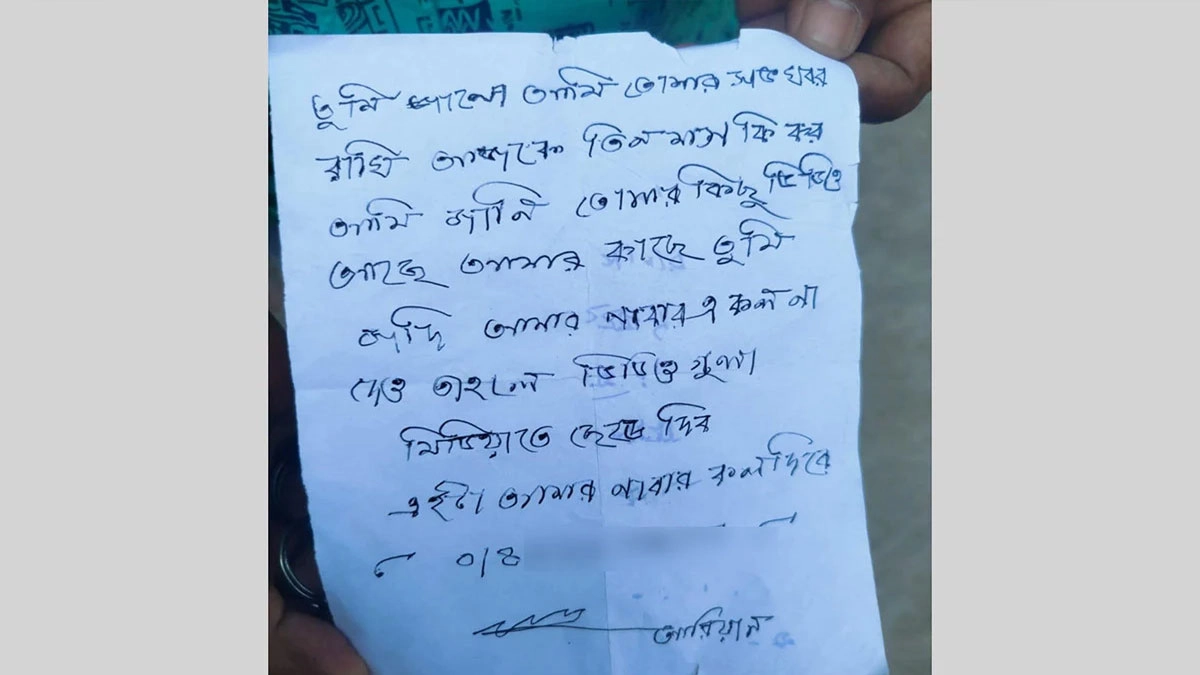 তুমি জানো আমি তোমার সব খবর
রাখি আজকে তিন মাস কি কর
আমি জানি তোমার কিছু ভিডিও
আছে আমার কাছে তুমি
যদি আমার নাম্বার এ কল না
দেও তাহলে ভিডিও গুলা
মিডিয়াতে ছেড়ে দিব
এইটা আমার নাম্বার কল দিবে
আরিয়ান